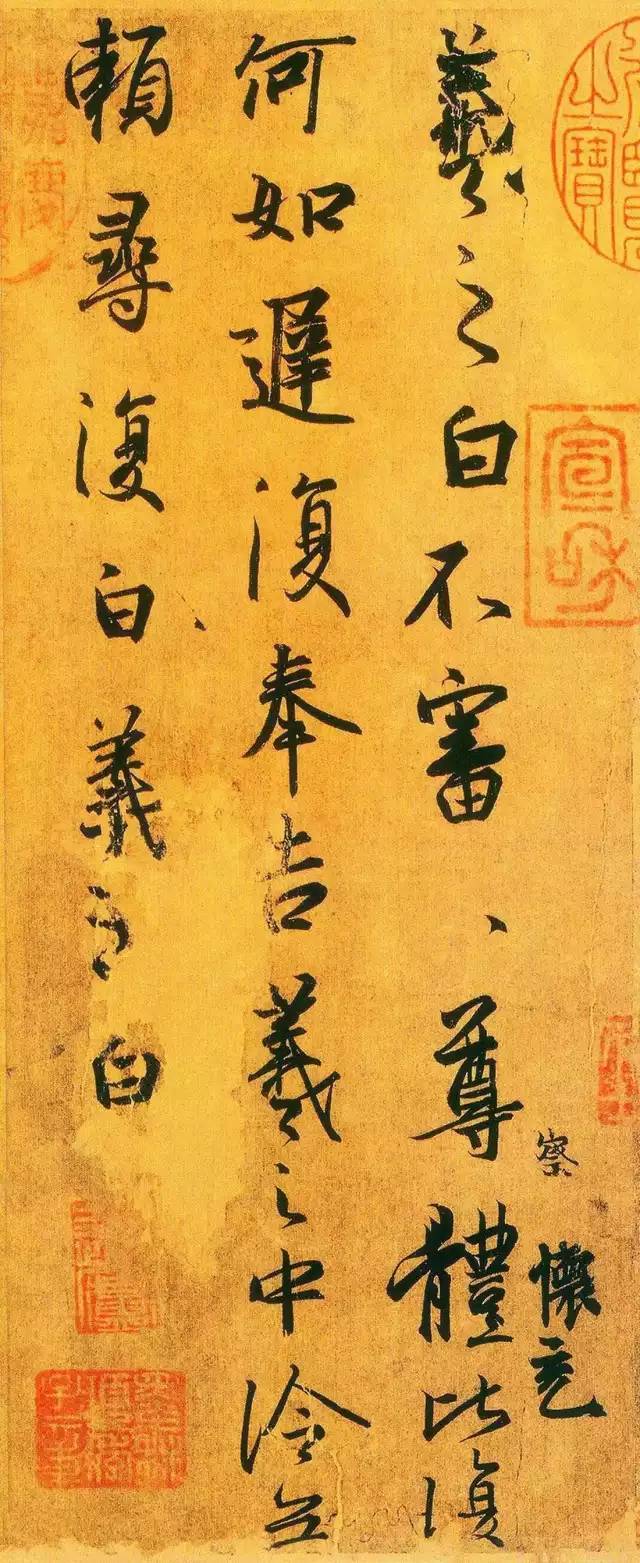 羲之白不審、尊體比復
察
懷充
何如遲復奉告羲之中冷無
賴尋復白羲之白
宣和